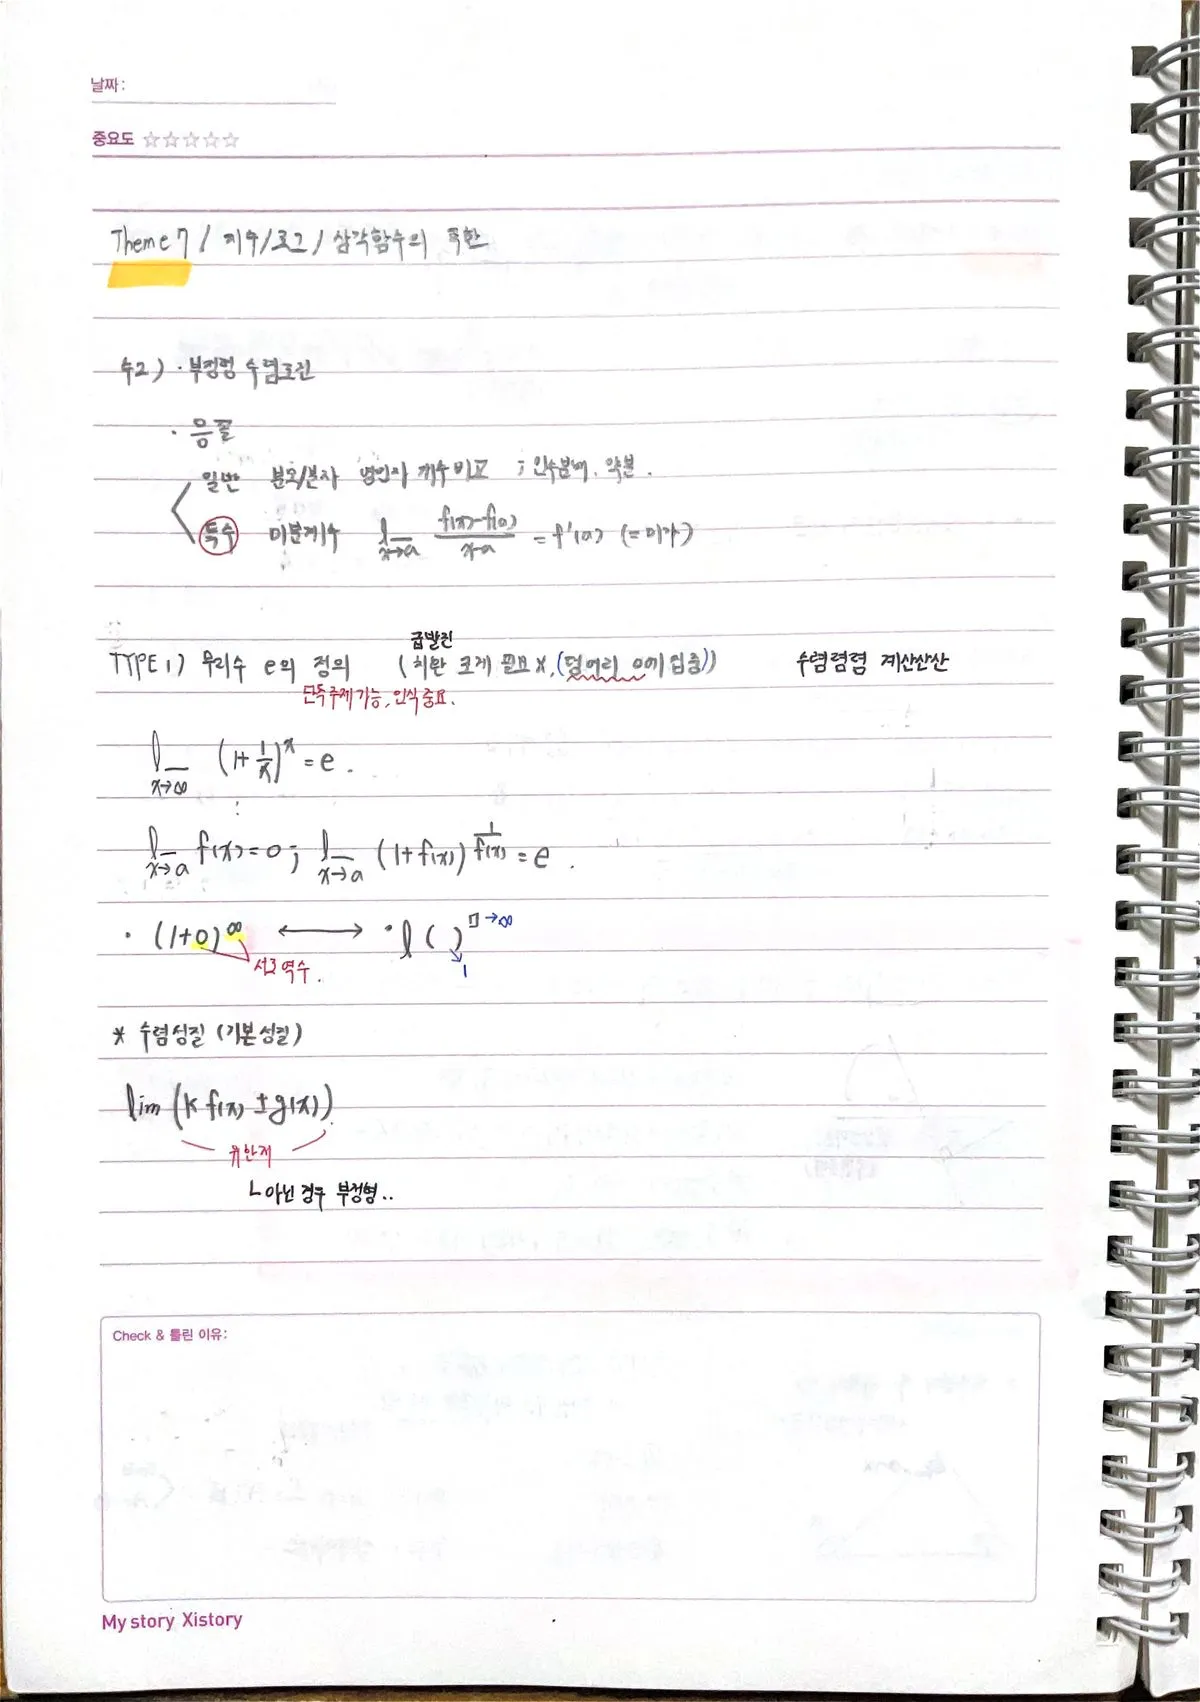 날짜:
중요도 ☆☆☆☆☆
Theme 7 / 지수/로그/삼각함수의 극한
수2) · 부정형 수렴조건
· 응꼴
일반 분모/분자 최고차 계수 비교 ; 인수분해. 약분.
특수 미분계수 l_{x→a} \frac{f(x)-f(a)}{x-a} = f'(a) (=미가)
급발진
TYPE 1) 무리수 e의 정의 (치환 크게 필요 X, (덩어리 0에 집중)) 수렴렴렴 계산산산
단독주제 가능, 인식 중요.
l_{x→∞} (1+\frac{1}{x})^x = e.
l_{x→a} f(x)=0; l_{x→a} (1+f(x))^{\frac{1}{f(x)}} = e.
· (1+0)^∞ ⟷ · l ( )^{□→∞}
서로 역수. 1
* 수렴성질 (기본성질)
lim (k f(x) ± g(x))
유한개
ㄴ아닌 경우 부정형..
Check & 틀린 이유:
My story Xistory